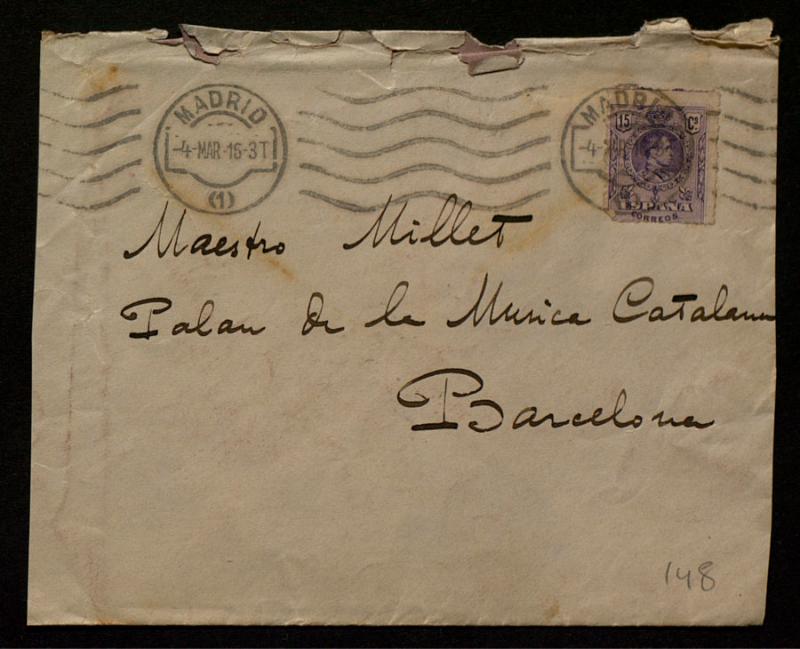 MADRID
-4-MAR-16-3T
(1)
MADRID
-4-
15 Cs
ESPAÑA
CORREOS
Maestro Millet
Palau de la Musica Catalana
Barcelona
148